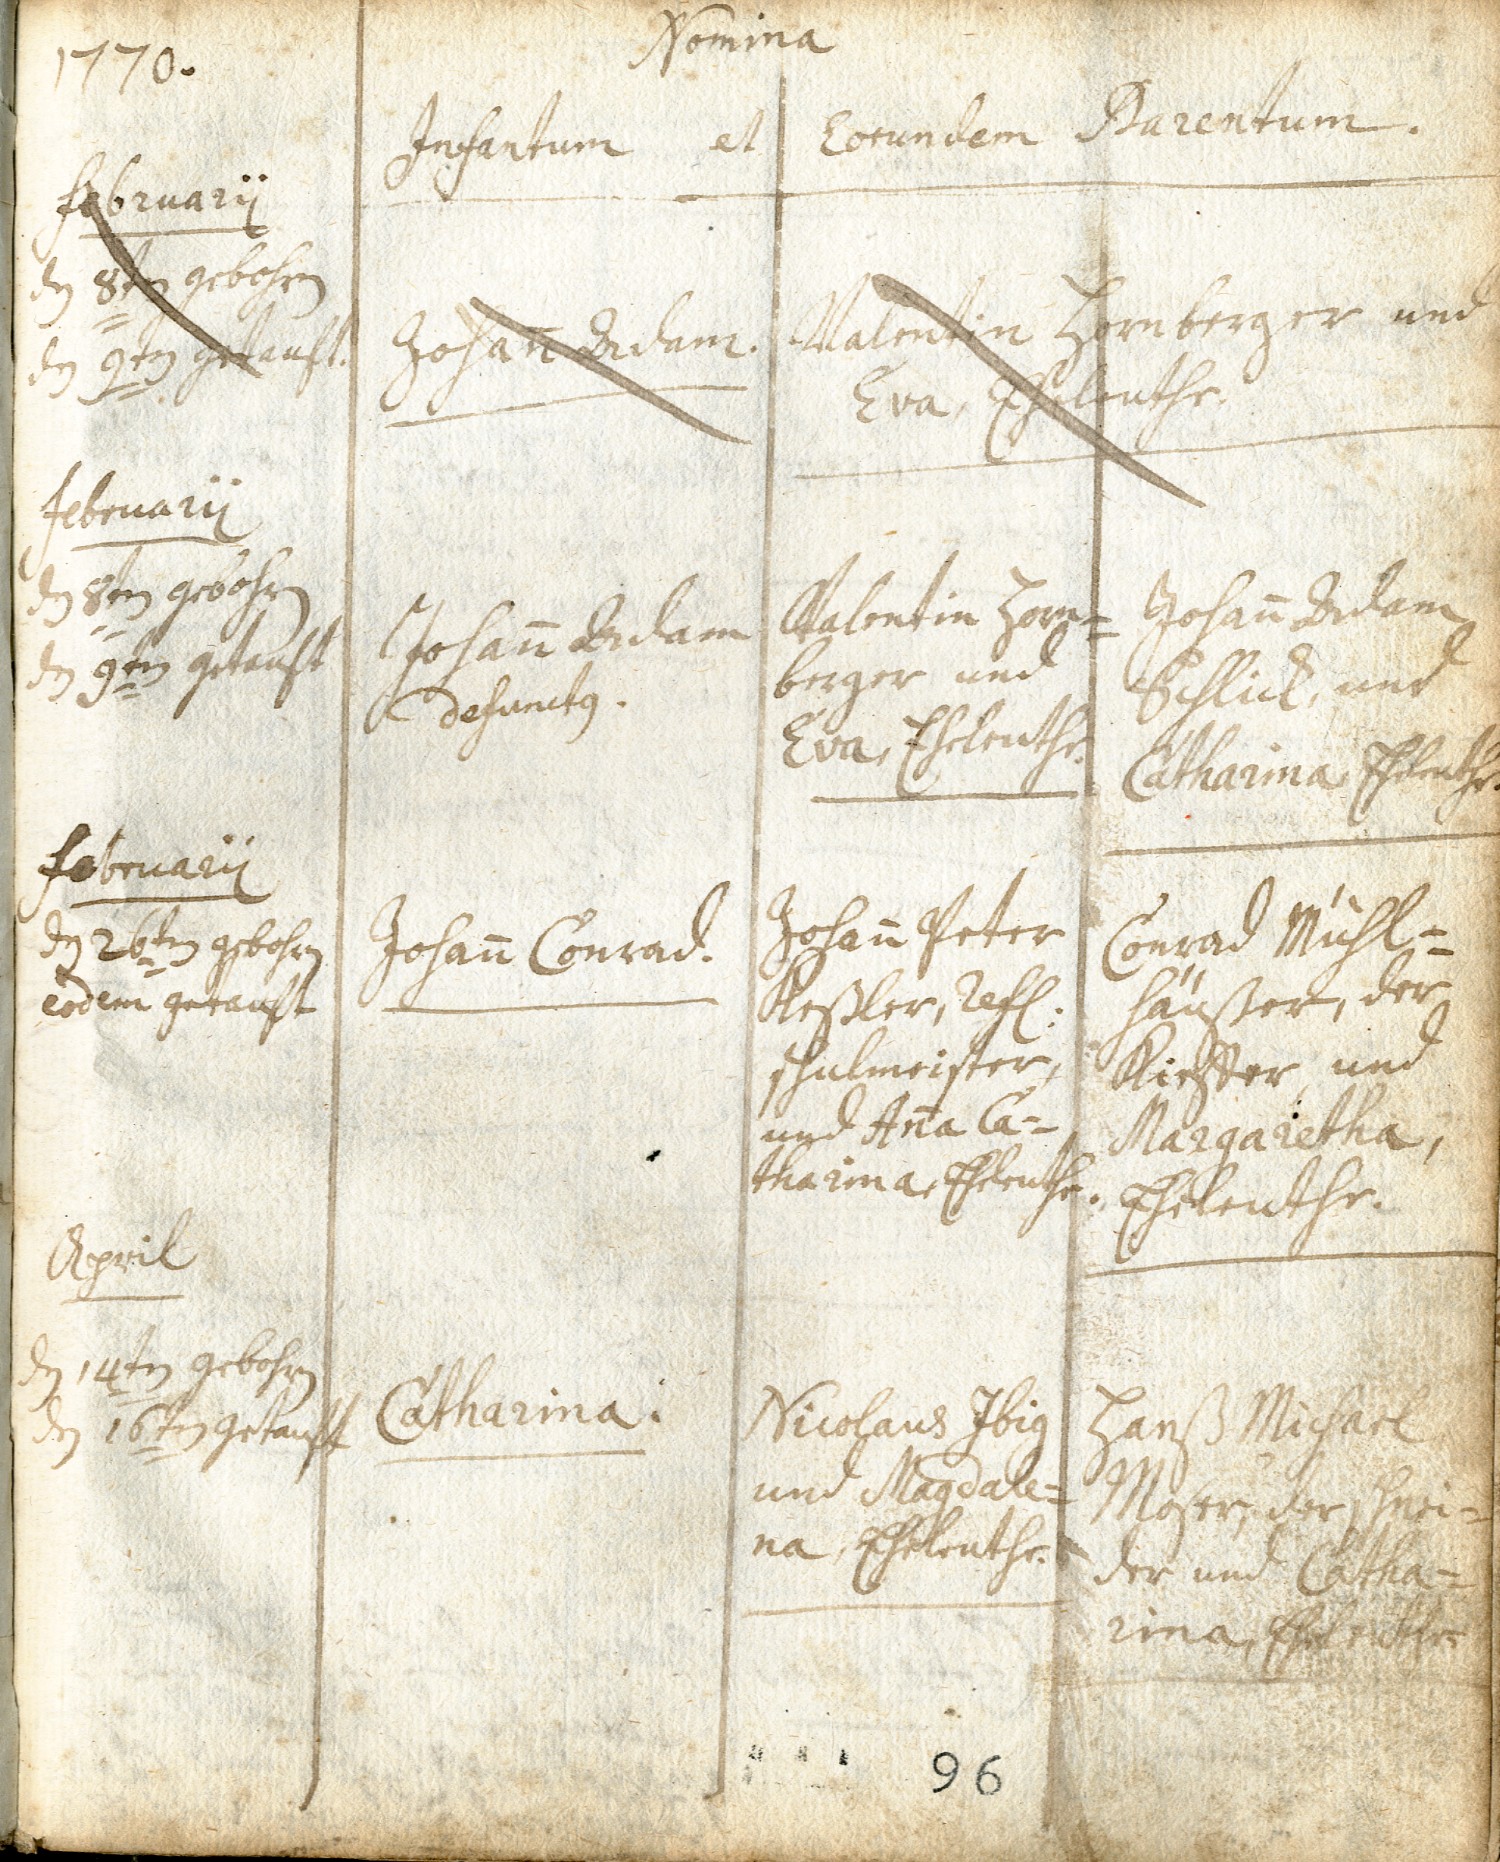 1770.
Nomina
Infantum et Eorundem Parentum.
Februarij
dn 8ten gebohrn
dn 9ten getauft.
Johan̄ Adam.
Valentin Hornberger und
Eva, Eheleuthe.
Februarij
dn 8ten gebohrn
dn 9ten getauft
Johan̄ Adam
defunctus.
Valentin Horn=
berger und
Eva, Eheleuthe.
Johan̄ Adam
Schlick, und
Catharina, Eheleuthe.
Februarij
dn 26ten gebohrn
eodem getauft
Johan̄ Conrad.
Johan̄ Peter
Keßler, Refl:
schulmeister,
und An̄a Ca=
tharina, Eheleuthe.
Conrad Mühl=
häußer, der
Kieffer und
Margaretha,
Eheleuthe.
April
dn 14ten gebohrn
dn 16ten getauft
Catharina.
Nicolaus Ibig
und Magdale=
na, Eheleuthe.
Hanß Michael
Moser, der schnei=
der und Catha=
rina, Eheleuthe
96